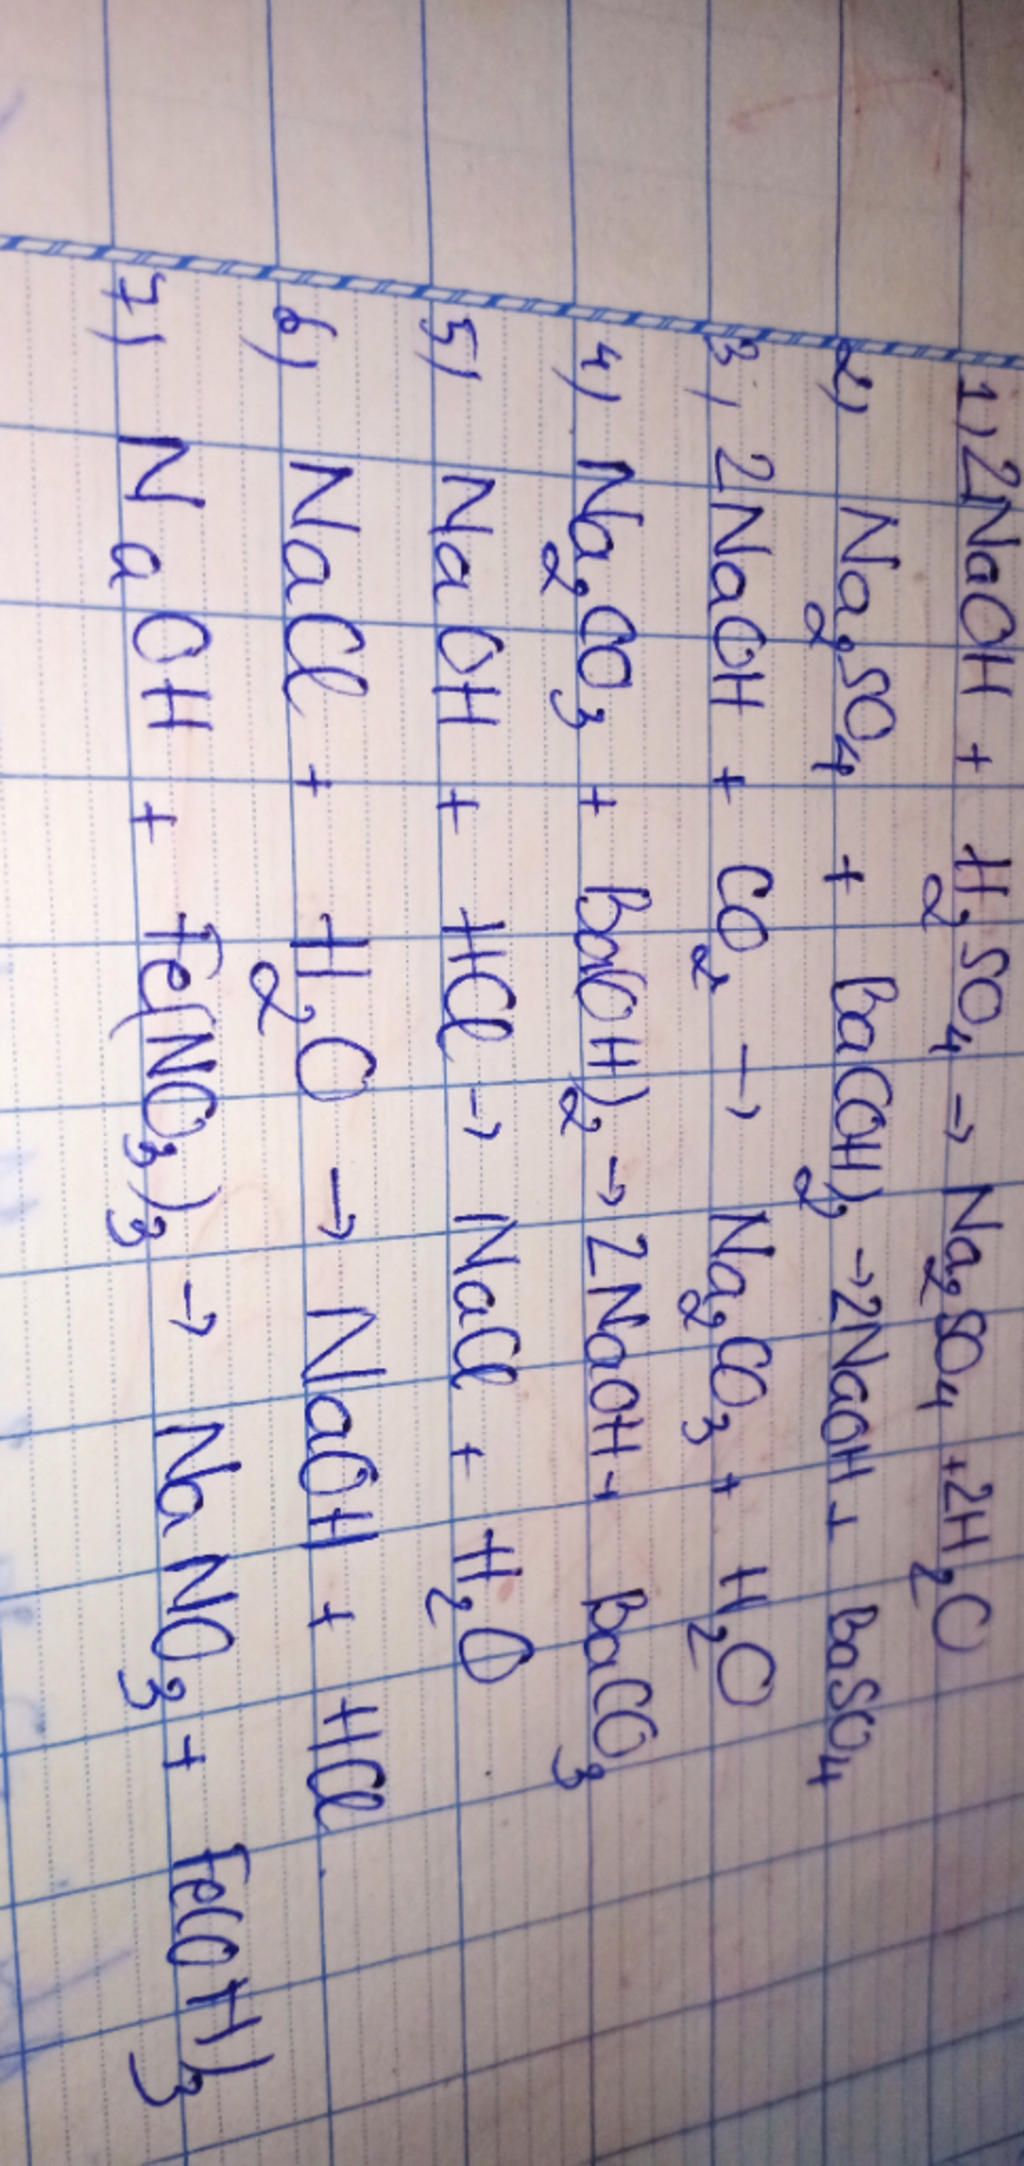 1) 2NaOH + H₂SO₄ → Na₂SO₄ + 2H₂O
2) Na₂SO₄ + Ba(OH)₂ → 2NaOH + BaSO₄
3) 2NaOH + CO₂ → Na₂CO₃ + H₂O
4) Na₂CO₃ + Ba(OH)₂ → 2NaOH + BaCO₃
5) NaOH + HCl → NaCl + H₂O
6) NaCl + H₂O → NaOH + HCl
7) NaOH + Fe(NO₃)₃ → NaNO₃ + Fe(OH)₃